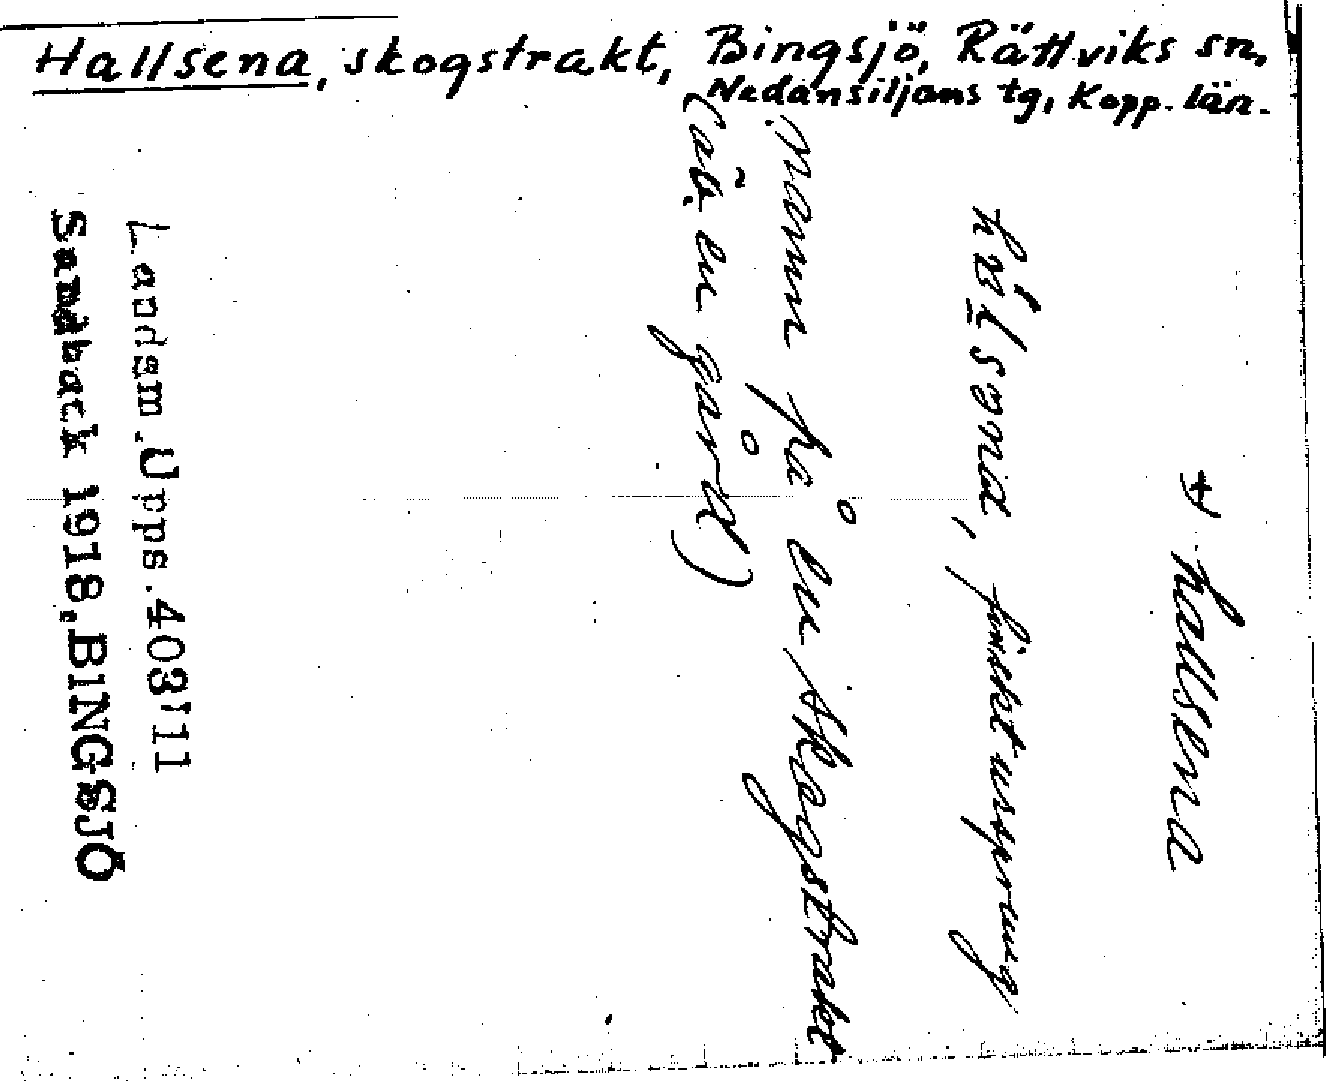 Hallsena, skogstrakt, Bingsjö, Rättviks sn,
Nedansiljans tg, Kopp. län.
hallsena
finskt ursprung
Namn på en skogstrakt
en gård)
Landsm. Upps. 403:11
Sandbäck 1918. BINGSJÖ